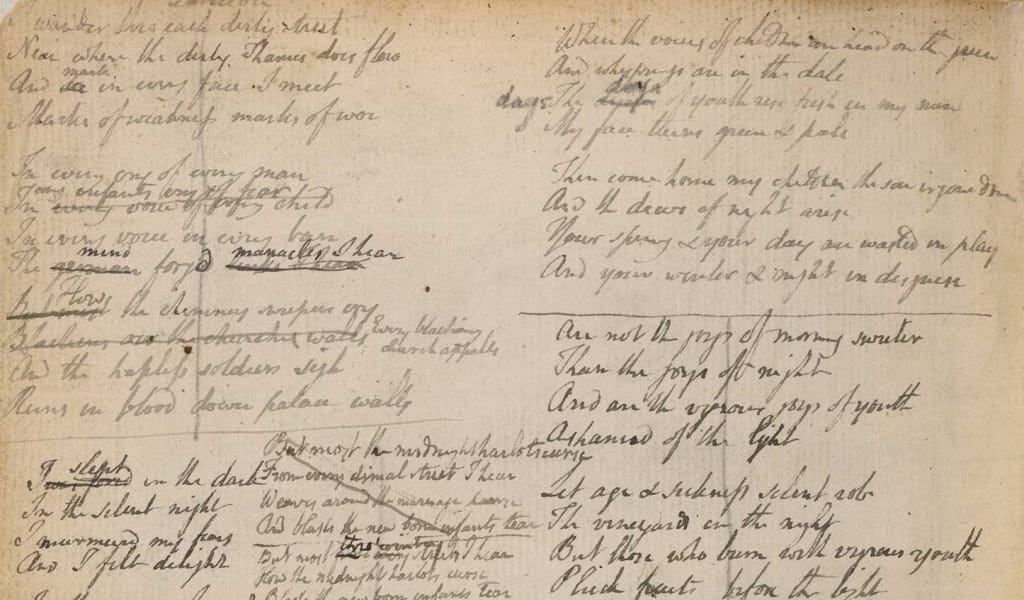 London
I wander thro each dirty street
Near where the dirty Thames does flow
And see mark in every face I meet
Marks of weakness marks of woe
In every cry of every man
In every infants cry of fear
In every voice of every child
In every voice in every ban
The german mind forgd links I hear manacles I hear
But most How the chimney sweepers cry
Blackens oer the churches walls Every blackning church appalls
And the hapless soldiers sigh
Runs in blood down palace walls
But most the midnight harlots curse
From every dismal street I hear
Weaves around the marriage hearse
And blasts the new born infants tear
But most thro wintry streets I hear
How the midnight harlots curse
Blasts the new born infants tear
I was fond slept in the dark
In the silent night
I murmured my fears
And I felt delight
In the
When the voices of children are heard on the green
And whisprings are in the dale
days The days of youth rise fresh in my mind
My face turns green & pale
Then come home my children the sun is gone down
And the dews of night arise
Your spring & your day are wasted in play
And your winter & night in disguise
Are not the joys of morning sweeter
Than the joys of night
And are the vigrous joys of youth
Ashamed of the light
Let age & sickness silent rob
The vineyards in the night
But those who burn with vigrous youth
Pluck fruits before the light